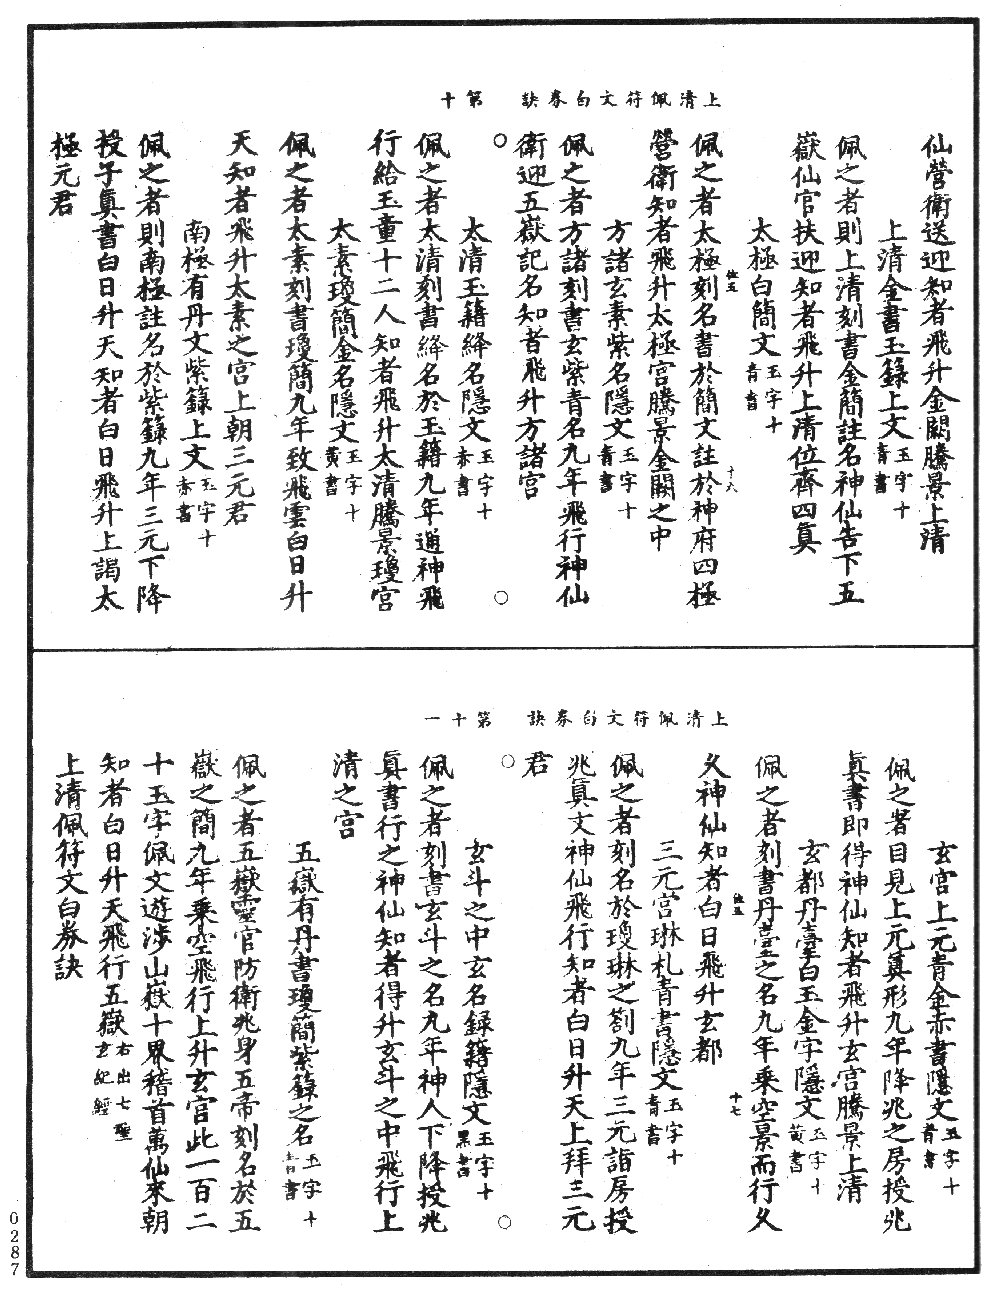 上清佩符文白券訣　第十
仙營衛送迎知者飛升金闕騰景上清
上清金書玉籙上文玉字十青書
佩之者則上清刻書金簡註名神仙告下五
嶽仙官扶迎知者飛升上清位齊四眞
太極白簡文玉字十青書
佩之者太極刻名書於簡文註於神府四極
營衛知者飛升太極宮騰景金闕之中
方諸玄素紫名隱文玉字十青書
佩之者方諸刻書玄紫青名九年飛行神仙
衛迎五嶽記名知者飛升方諸宮
太清玉籍絳名隱文玉字十赤書
佩之者太清刻書絳名於玉籍九年通神飛
行給玉童十二人知者飛升太清騰景瓊宮
太素瓊簡金名隱文玉字十黃書
佩之者太素刻書瓊簡九年致飛雲白日升
天知者飛升太素之宮上朝三元君
南極有丹文紫籙上文玉字十赤書
佩之者則南極註名於紫籙九年三元下降
授子眞書白日升天知者白日飛升上謁太
極元君
十六
上清佩符文白券訣　第十一
玄宮上元青金赤書隱文玉字十青書
佩之者目見上元眞形九年降兆之房授兆
眞書即得神仙知者飛升玄宮騰景上清
玄都丹臺白玉金字隱文玉字十黃書
佩之者刻書丹臺之名九年乘空景而行久
久神仙知者白日飛升玄都
三元宮琳札青書隱文玉字十青書
佩之者刻名於瓊琳之劄九年三元詣房授
兆眞文神仙飛行知者白日升天上拜三元
君
玄斗之中玄名錄籍隱文玉字十黑書
佩之者刻書玄斗之名九年神人下降授兆
眞書行之神仙知者得升玄斗之中飛行上
清之宮
五嶽有丹書瓊簡紫籙之名玉字十書
佩之者五嶽靈官防衛兆身五帝刻名於五
嶽之簡九年乘空飛行上升玄宮此一百二
十玉字佩文遊涉山嶽十界稽首萬仙來朝
知者白日升天飛行五嶽右出七聖玄紀經
上清佩符文白券訣
十七
0287